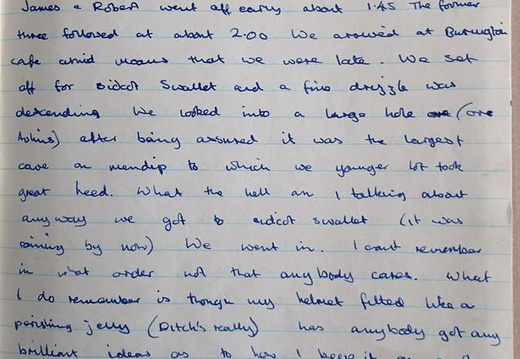 James & Robert went off early about 1.45 The former
three followed at about 2.00 We arrived at Burrington
cafe amid moans that we were late. We set
off for Sidcot Swallet and a fine drizzle was
descending We looked into a large hole (
) after being assured it was the largest
cave on mendip to which we younger lot took
great heed. What the hell am I talking about
anyway we got to sidcot swallet (it was
raining by now) We went in. I cant remember
in what order not that anybody cares. What
I do remember is though my helmet fitted like a
perishing jelly (Ditch's really) has anybody got any
brilliant ideas as to how I keep it